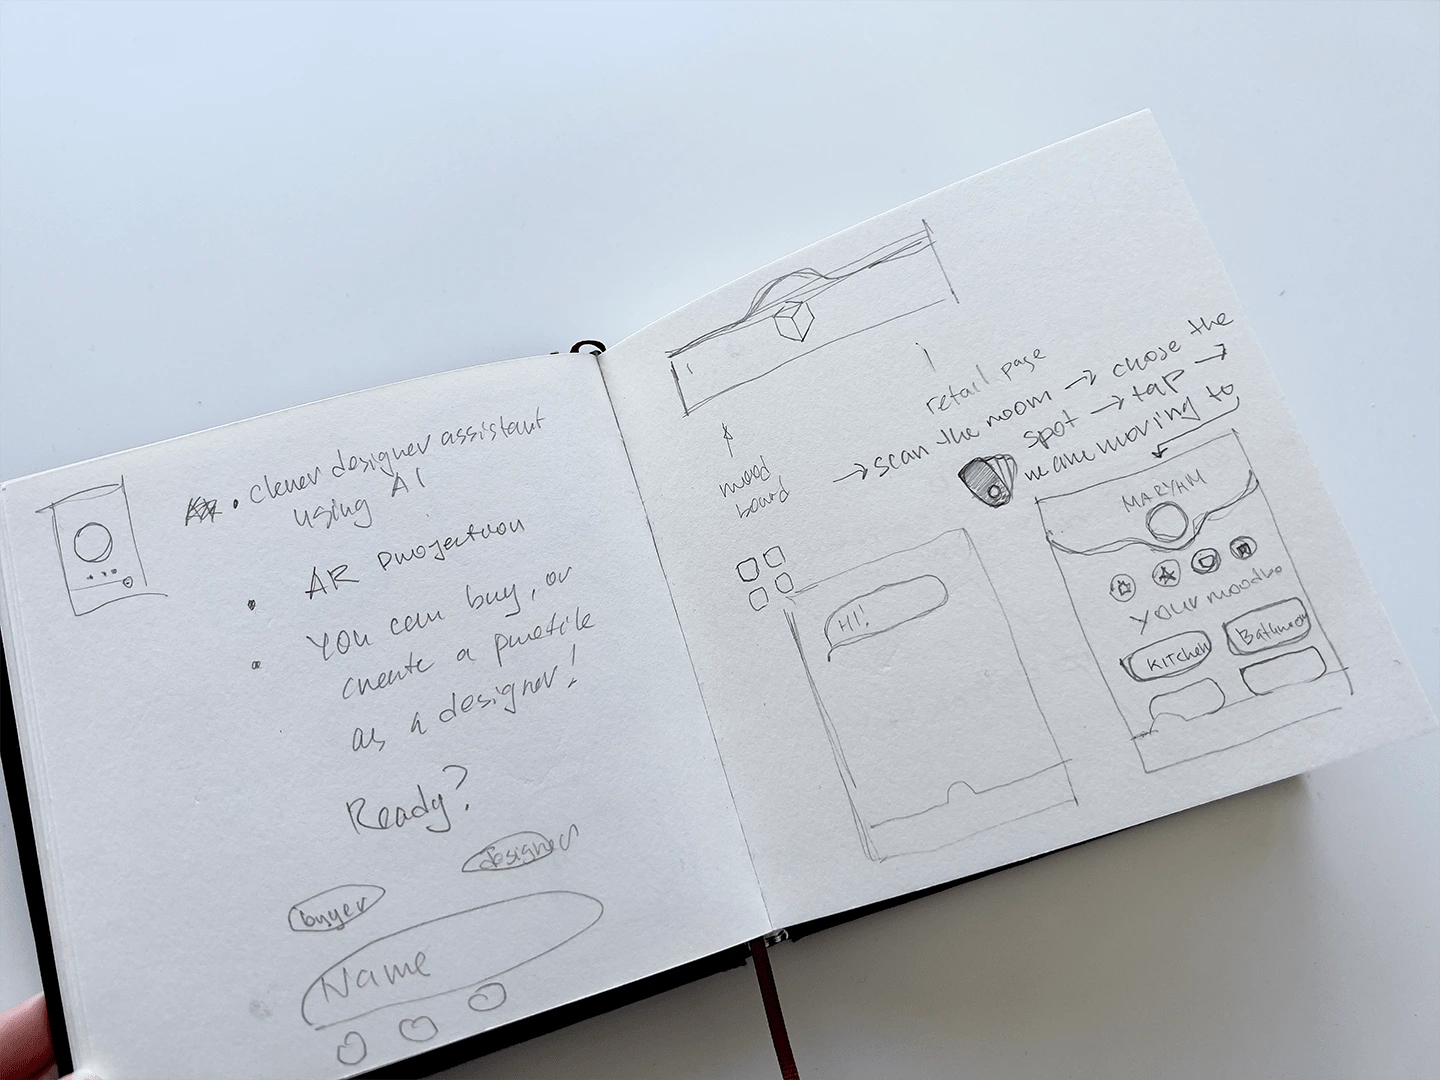 . Clever designer assistant
using AI
. AR projection
. You can buy, or
create a profile
as a designer!
Ready?
buyer
designer
Name
mood
board
retail page
→ scan the room → chose the
spot → tap →
we are moving to
HI!
MARYAM
Your moodbo
Kitchen
Bathroom